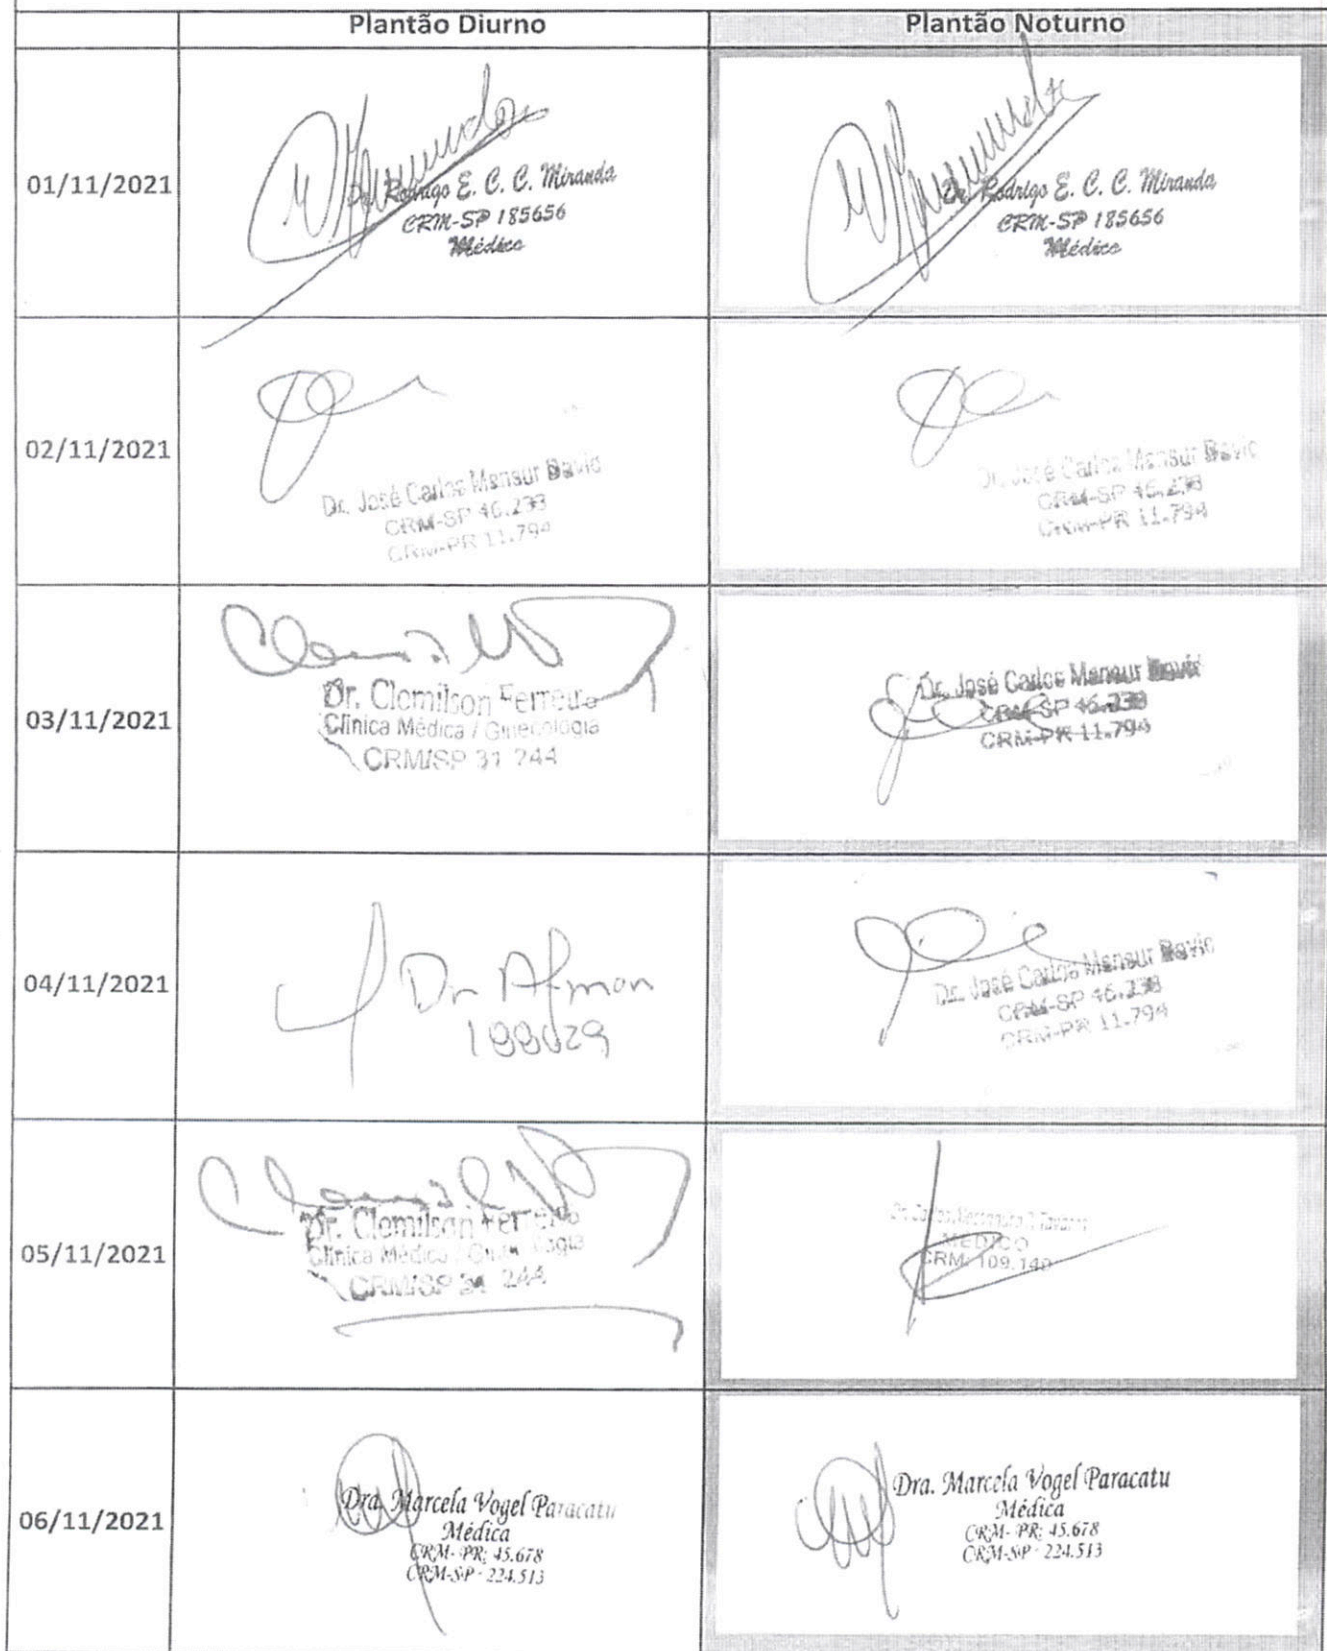 Plantão Diurno
Plantão Noturno
01/11/2021
Dr. Rodrigo E. C. C. Miranda
CRM-SP 185656
Médico
Dr. Rodrigo E. C. C. Miranda
CRM-SP 185656
Médico
02/11/2021
Dr. José Carlos Mansur David
CRM-SP 46.238
CRM-PR 11.794
Dr. José Carlos Mansur David
CRM-SP 46.238
CRM-PR 11.794
03/11/2021
Dr. Clemilson Ferreira
Clínica Médica / Ginecologia
CRM/SP 31 244
Dr. José Carlos Mansur David
CRM-SP 46.238
CRM-PR 11.794
04/11/2021
Dr
Dr. José Carlos Mansur David
CRM-SP 46.238
CRM-PR 11.794
05/11/2021
Dr. Clemilson Ferreira
Clínica Médica / Ginecologia
CRM/SP 31 244
Dr. Carlos
MÉDICO
CRM: 109.140
06/11/2021
Dra. Marcela Vogel Paracatu
Médica
CRM- PR: 45.678
CRM-SP - 224.513
Dra. Marcela Vogel Paracatu
Médica
CRM- PR: 45.678
CRM-SP - 224.513